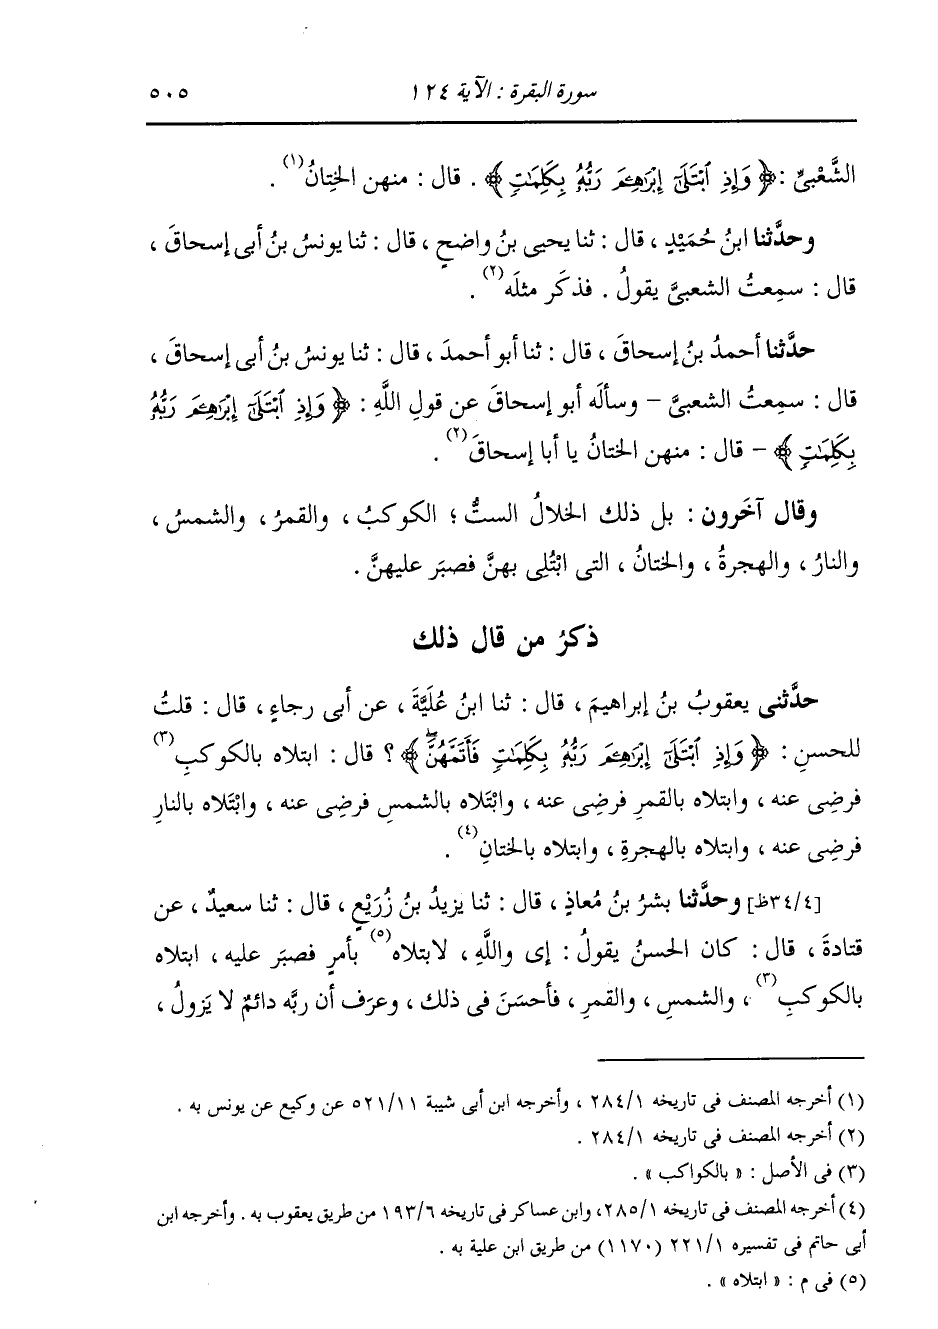 سورة البقرة : الآية ١٢٤ ٥٠٥
الشَّعْبىِّ : ﴿ وَإِذِ ٱبْتَلَىٰٓ إِبْرَٰهِـۧمَ رَبُّهُۥ بِكَلِمَـٰتٍ ﴾ . قال : منهن الختانُ(١) .
وحدَّثنا ابنُ حُمَيْدٍ ، قال : ثنا يحيى بنُ واضحٍ ، قال : ثنا يونسُ بنُ أبى إسحاقَ ،
قال : سمِعتُ الشعبىَّ يقولُ . فذكَر مثلَه(٢) .
حدَّثنا أحمدُ بنُ إسحاقَ ، قال : ثنا أبو أحمدَ ، قال : ثنا يونسُ بنُ أبى إسحاقَ ،
قال : سمِعتُ الشعبىَّ – وسأله أبو إسحاقَ عن قولِ اللَّهِ : ﴿ وَإِذِ ٱبْتَلَىٰٓ إِبْرَٰهِـۧمَ رَبُّهُۥ
بِكَلِمَـٰتٍ ﴾ – قال : منهن الختانُ يا أبا إسحاقَ(٢) .
وقال آخَرون : بل ذلك الخلالُ الستُّ ؛ الكوكبُ ، والقمرُ ، والشمسُ ،
والنارُ ، والهجرةُ ، والختانُ ، التى ابْتُلِى بهنَّ فصبَر عليهنَّ .
ذكرُ من قال ذلك
حدَّثنى يعقوبُ بنُ إبراهيمَ ، قال : ثنا ابنُ عُلَيَّةَ ، عن أبى رجاءٍ ، قال : قلتُ
للحسنِ : ﴿ وَإِذِ ٱبْتَلَىٰٓ إِبْرَٰهِـۧمَ رَبُّهُۥ بِكَلِمَـٰتٍ فَأَتَمَّهُنَّۖ ﴾ ؟ قال : ابتلاه بالكوكبِ(٣)
فرضِى عنه ، وابتلاه بالقمرِ فرضِى عنه ، وابْتَلاه بالشمسِ فرضِى عنه ، وابْتَلاه بالنارِ
فرضِى عنه ، وابتلاه بالهجرةِ ، وابتلاه بالختانِ(٤) .
[٣٤/٤ظ] وحدَّثنا بشرُ بنُ مُعاذٍ ، قال : ثنا يزيدُ بنُ زُرَيْعٍ ، قال : ثنا سعيدٌ ، عن
قتادةَ ، قال : كان الحسنُ يقولُ : إى واللَّهِ ، لابتلاه(٥) بأمرٍ فصبَر عليه ، ابتلاه
بالكوكبِ(٣) ، والشمسِ ، والقمرِ ، فأحسَنَ فى ذلك ، وعرَف أن ربَّه دائمٌ لا يَزولُ ،
(١) أخرجه المصنف فى تاريخه ٢٨٤/١ ، وأخرجه ابن أبى شيبة ٥٢١/١١ عن وكيع عن يونس به .
(٢) أخرجه المصنف فى تاريخه ٢٨٤/١ .
(٣) فى الأصل : « بالكواكب » .
(٤) أخرجه المصنف فى تاريخه ٢٨٥/١، وابن عساكر فى تاريخه ١٩٣/٦ من طريق يعقوب به . وأخرجه ابن
أبى حاتم فى تفسيره ٢٢١/١ (١١٧٠) من طريق ابن علية به .
(٥) فى م : « ابتلاه » .